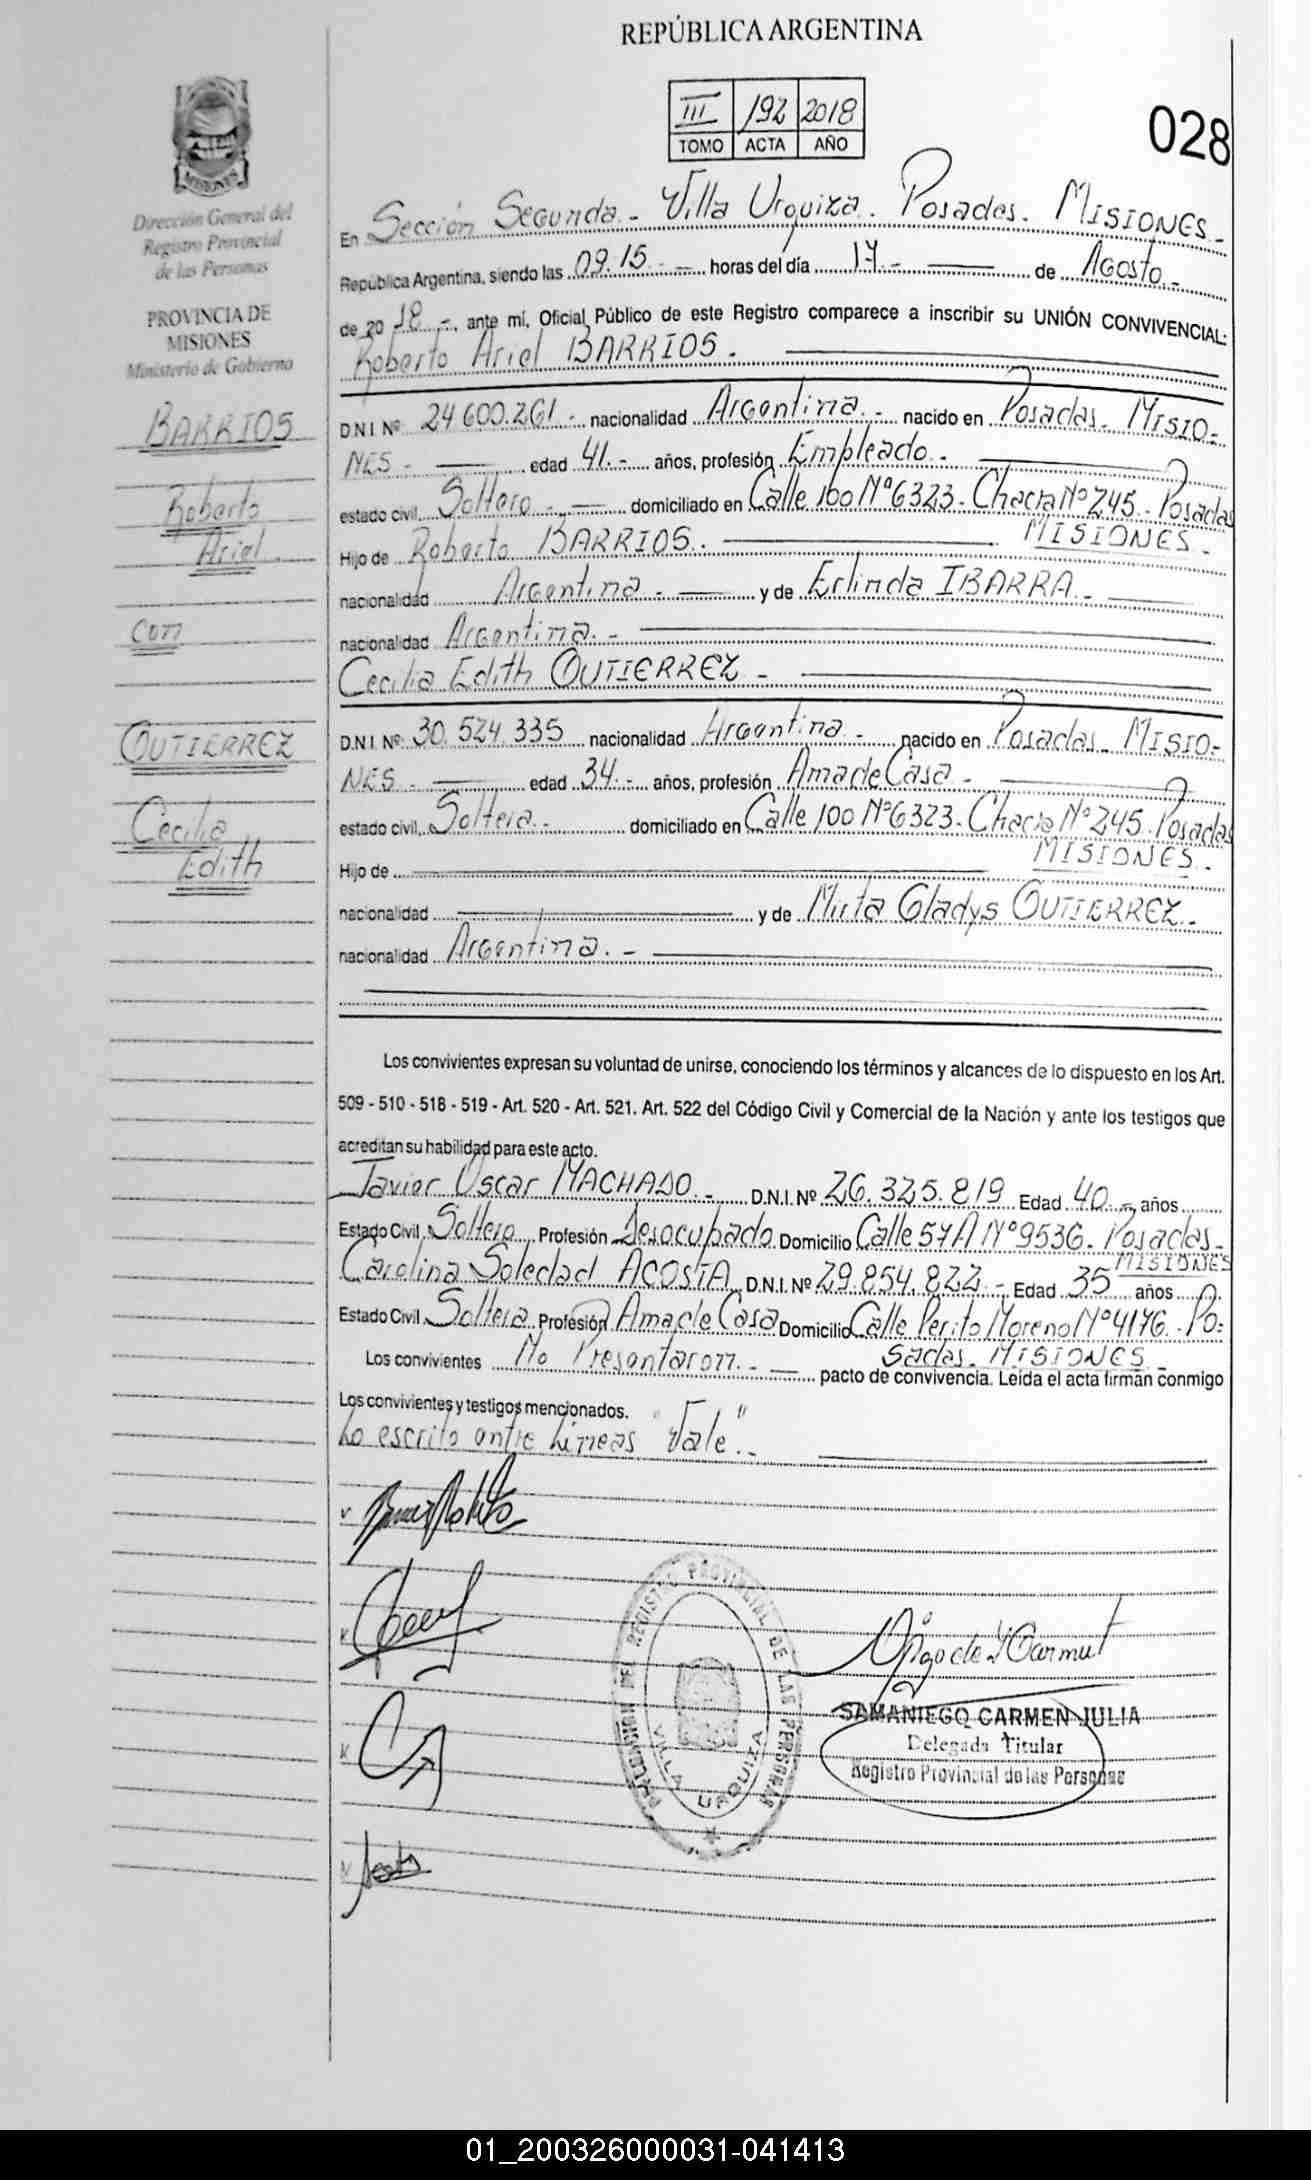 REPÚBLICA ARGENTINA
III 192 2018
TOMO ACTA AÑO
028
MISIONES
Dirección General del
Registro Provincial
de las Personas
PROVINCIA DE
MISIONES
Ministerio de Gobierno
BARRIOS
Roberto
Ariel
con
GUTIERREZ
Cecilia
Edith
En Sección Segunda.- Villa Urquiza. Posadas. MISIONES.-
República Argentina, siendo las 09.15.- horas del día 17.- de Agosto.-
de 20 18.-, ante mí, Oficial Público de este Registro comparece a inscribir su UNIÓN CONVIVENCIAL:
Roberto Ariel BARRIOS.
D.N.I Nº 24.600.261.- nacionalidad Argentina.- nacido en Posadas. MISIO-
NES.- edad 41.- años, profesión Empleado.-
estado civil Soltero.- domiciliado en Calle 100 Nº 6323. Chacra Nº 245. Posadas
MISIONES.-
Hijo de Roberto BARRIOS.
nacionalidad Argentina.- y de Erlinda IBARRA.-
nacionalidad Argentina.-
Cecilia Edith GUTIERREZ.-
D.N.I. Nº 30.524.335 nacionalidad Argentina.- nacido en Posadas. MISIO-
NES.- edad 34.- años, profesión Ama de Casa.-
estado civil Soltera.- domiciliado en Calle 100 Nº 6323. Chacra Nº 245. Posadas
MISIONES.-
Hijo de
nacionalidad y de Mirta Gladys GUTIERREZ.-
nacionalidad Argentina.-
Los convivientes expresan su voluntad de unirse, conociendo los términos y alcances de lo dispuesto en los Art.
509 - 510 - 518 - 519 - Art. 520 - Art. 521. Art. 522 del Código Civil y Comercial de la Nación y ante los testigos que
acreditan su habilidad para este acto.
Javier Oscar MACHADO.- D.N.I. Nº 26.325.819 Edad 40.- años
Estado Civil Soltero Profesión Desocupado Domicilio Calle 57A Nº 9536. Posadas-
MISIONES
Carolina Soledad ACOSTA D.N.I. Nº 29.854.822.- Edad 35 años
Estado Civil Soltera Profesión Ama de Casa Domicilio Calle Perito Moreno Nº 4176. Po-
sadas. MISIONES.-
Los convivientes No Presentaron.- pacto de convivencia. Leída el acta firman conmigo
Los convivientes y testigos mencionados.
Lo escrito entre Líneas "Vale".-
DEL REGISTRO PROVINCIAL DE LAS PERSONAS
VILLA URQUIZA
SAMANIEGO CARMEN JULIA
Delegada Titular
Registro Provincial de las Personas
01_200326000031-041413